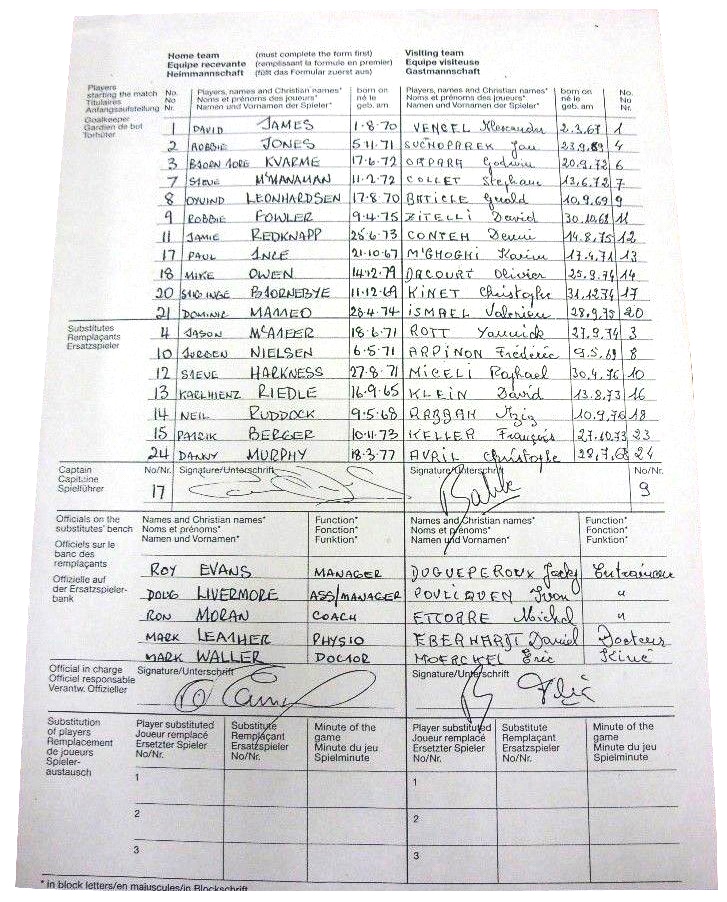 Home team (must complete the form first) Visiting team
Equipe recevante (remplissant la formule en premier) Equipe visiteuse
Heimmannschaft (füllt das Formular zuerst aus) Gastmannschaft
Players No. Players, names and Christian names* born on Players, names and Christian names* born on No.
starting the match No Noms et prénoms des joueurs* né le Noms et prénoms des joueurs* né le No
Titulaires Nr. Namen und Vornamen der Spieler* geb. am Namen und Vornamen der Spieler* geb. am Nr.
Anfangsaufstellung
Goalkeeper
Gardien de but
Torhüter
1 DAVID JAMES 1-8-70 VENCEL Alexander 2.3.67 1
2 ROBBIE JONES 5-11-71 SUCHOPAREK Jan 23.9.69 4
3 BJORN TORE KVARME 17-6-72 OKPARA Godwin 20.9.72 6
7 STEVE McMANAMAN 11-2-72 COLLET Stephane 13.6.72 7
8 OYVIND LEONHARDSEN 17-8-70 BATICLE Gérald 10.9.69 9
9 ROBBIE FOWLER 9-4-75 ZITELLI David 30.10.68 11
11 JAMIE REDKNAPP 25-6-73 CONTEH Denni 14.8.75 12
17 PAUL INCE 21-10-67 M'GHOGHI Karim 17.4.71 13
18 MIKE OWEN 14-12-79 DACOURT Olivier 25.9.74 14
20 STIG INGE BJORNEBYE 11-12-69 KINET Christophe 31.12.74 17
21 DOMINIC MATTEO 28-4-74 ISMAEL Valerien 28.9.75 20
Substitutes
Remplaçants
Ersatzspieler
4 JASON McATEER 18-6-71 ROTT Yannick 27.9.74 3
10 JORGEN NIELSEN 6-5-71 ARPINON Frédéric 9.5.69 8
12 STEVE HARKNESS 27-8-71 MICELI Raphael 30.4.76 10
13 KARLHIENZ RIEDLE 16-9-65 KLEIN David 13.8.73 16
14 NEIL RUDDOCK 9-5-68 RABBAH Aziz 10.9.76 18
15 PATRIK BERGER 10-11-73 KELLER François 27.10.73 23
24 DANNY MURPHY 18-3-77 AVRIL Christophe 28.7.68 24
Captain No/Nr. Signature/Unterschrift Signature/Unterschrift No/Nr.
Capitaine
Spielführer 17 9
Officials on the Names and Christian names* Function* Names and Christian names* Function*
substitutes' bench Noms et prénoms* Fonction* Noms et prénoms* Fonction*
Officiels sur le Namen und Vornamen* Funktion* Namen und Vornamen* Funktion*
banc des
remplaçants
Offizielle auf
der Ersatzspieler-
bank
ROY EVANS MANAGER DUGUEPEROUX Jacky Entraineur
DOUG LIVERMORE ASS/MANAGER POULIQUEN Yvon "
RON MORAN COACH ETTORRE Michel "
MARK LEATHER PHYSIO EBERHARDT Daniel Docteur
MARK WALLER DOCTOR MOERCKEL Eric Kiné
Official in charge Signature/Unterschrift Signature/Unterschrift
Officiel responsable
Verantw. Offizieller
Substitution Player substituted Substitute Minute of the Player substituted Substitute Minute of the
of players Joueur remplacé Remplaçant game Joueur remplacé Remplaçant game
Remplacement Ersetzter Spieler Ersatzspieler Minute du jeu Ersetzter Spieler Ersatzspieler Minute du jeu
de joueurs No/Nr. No/Nr. Spielminute No/Nr. No/Nr. Spielminute
Spieler-
austausch
1 1
2 2
3 3
* In block letters/en majuscules/in Blockschrift